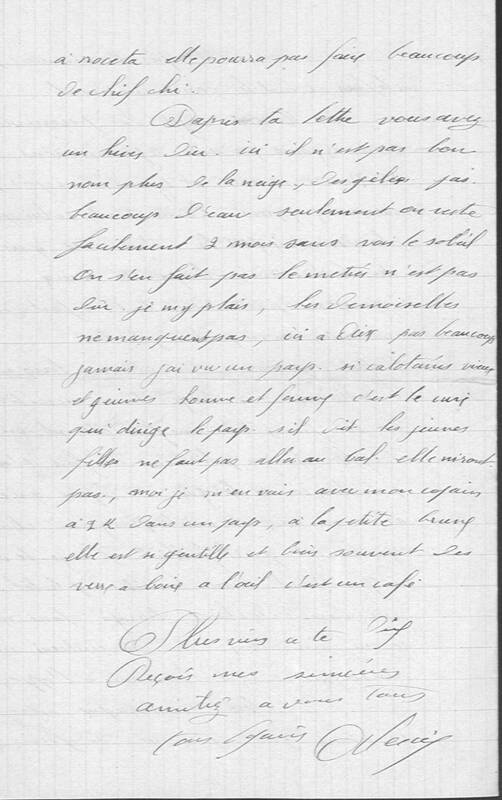 à noceta elle pourra pas faire beaucoup
de chif chi.
Dapres ta lettre vous avez
un hiver dur. ici il n'est pas bon
nom plus de la neige, des gelées jai
beaucoup d'eau seulement on reste
facilement 2 mois sans voir le soleil
on s'en fait pas le metier n'est pas
dur. je my plais, les demoiselles
ne manquent pas, ici a Elix pas beaucoup
jamais j'ai vu un pays si calotains vieux
et jeunes homme et femme c'est le curé
qui dirige le pays. s'il dit les jeunes
filles ne faut pas aller au bal. elle niront
pas, moi je m'en vais avec mon copain
à 7 K dans un pays, a la petite brune
elle est si gentille et bien souvent des
verre a boire a l'oeil c'est un café
Plus rien a te dire
Reçois mes sincères
amitiés a vous tous